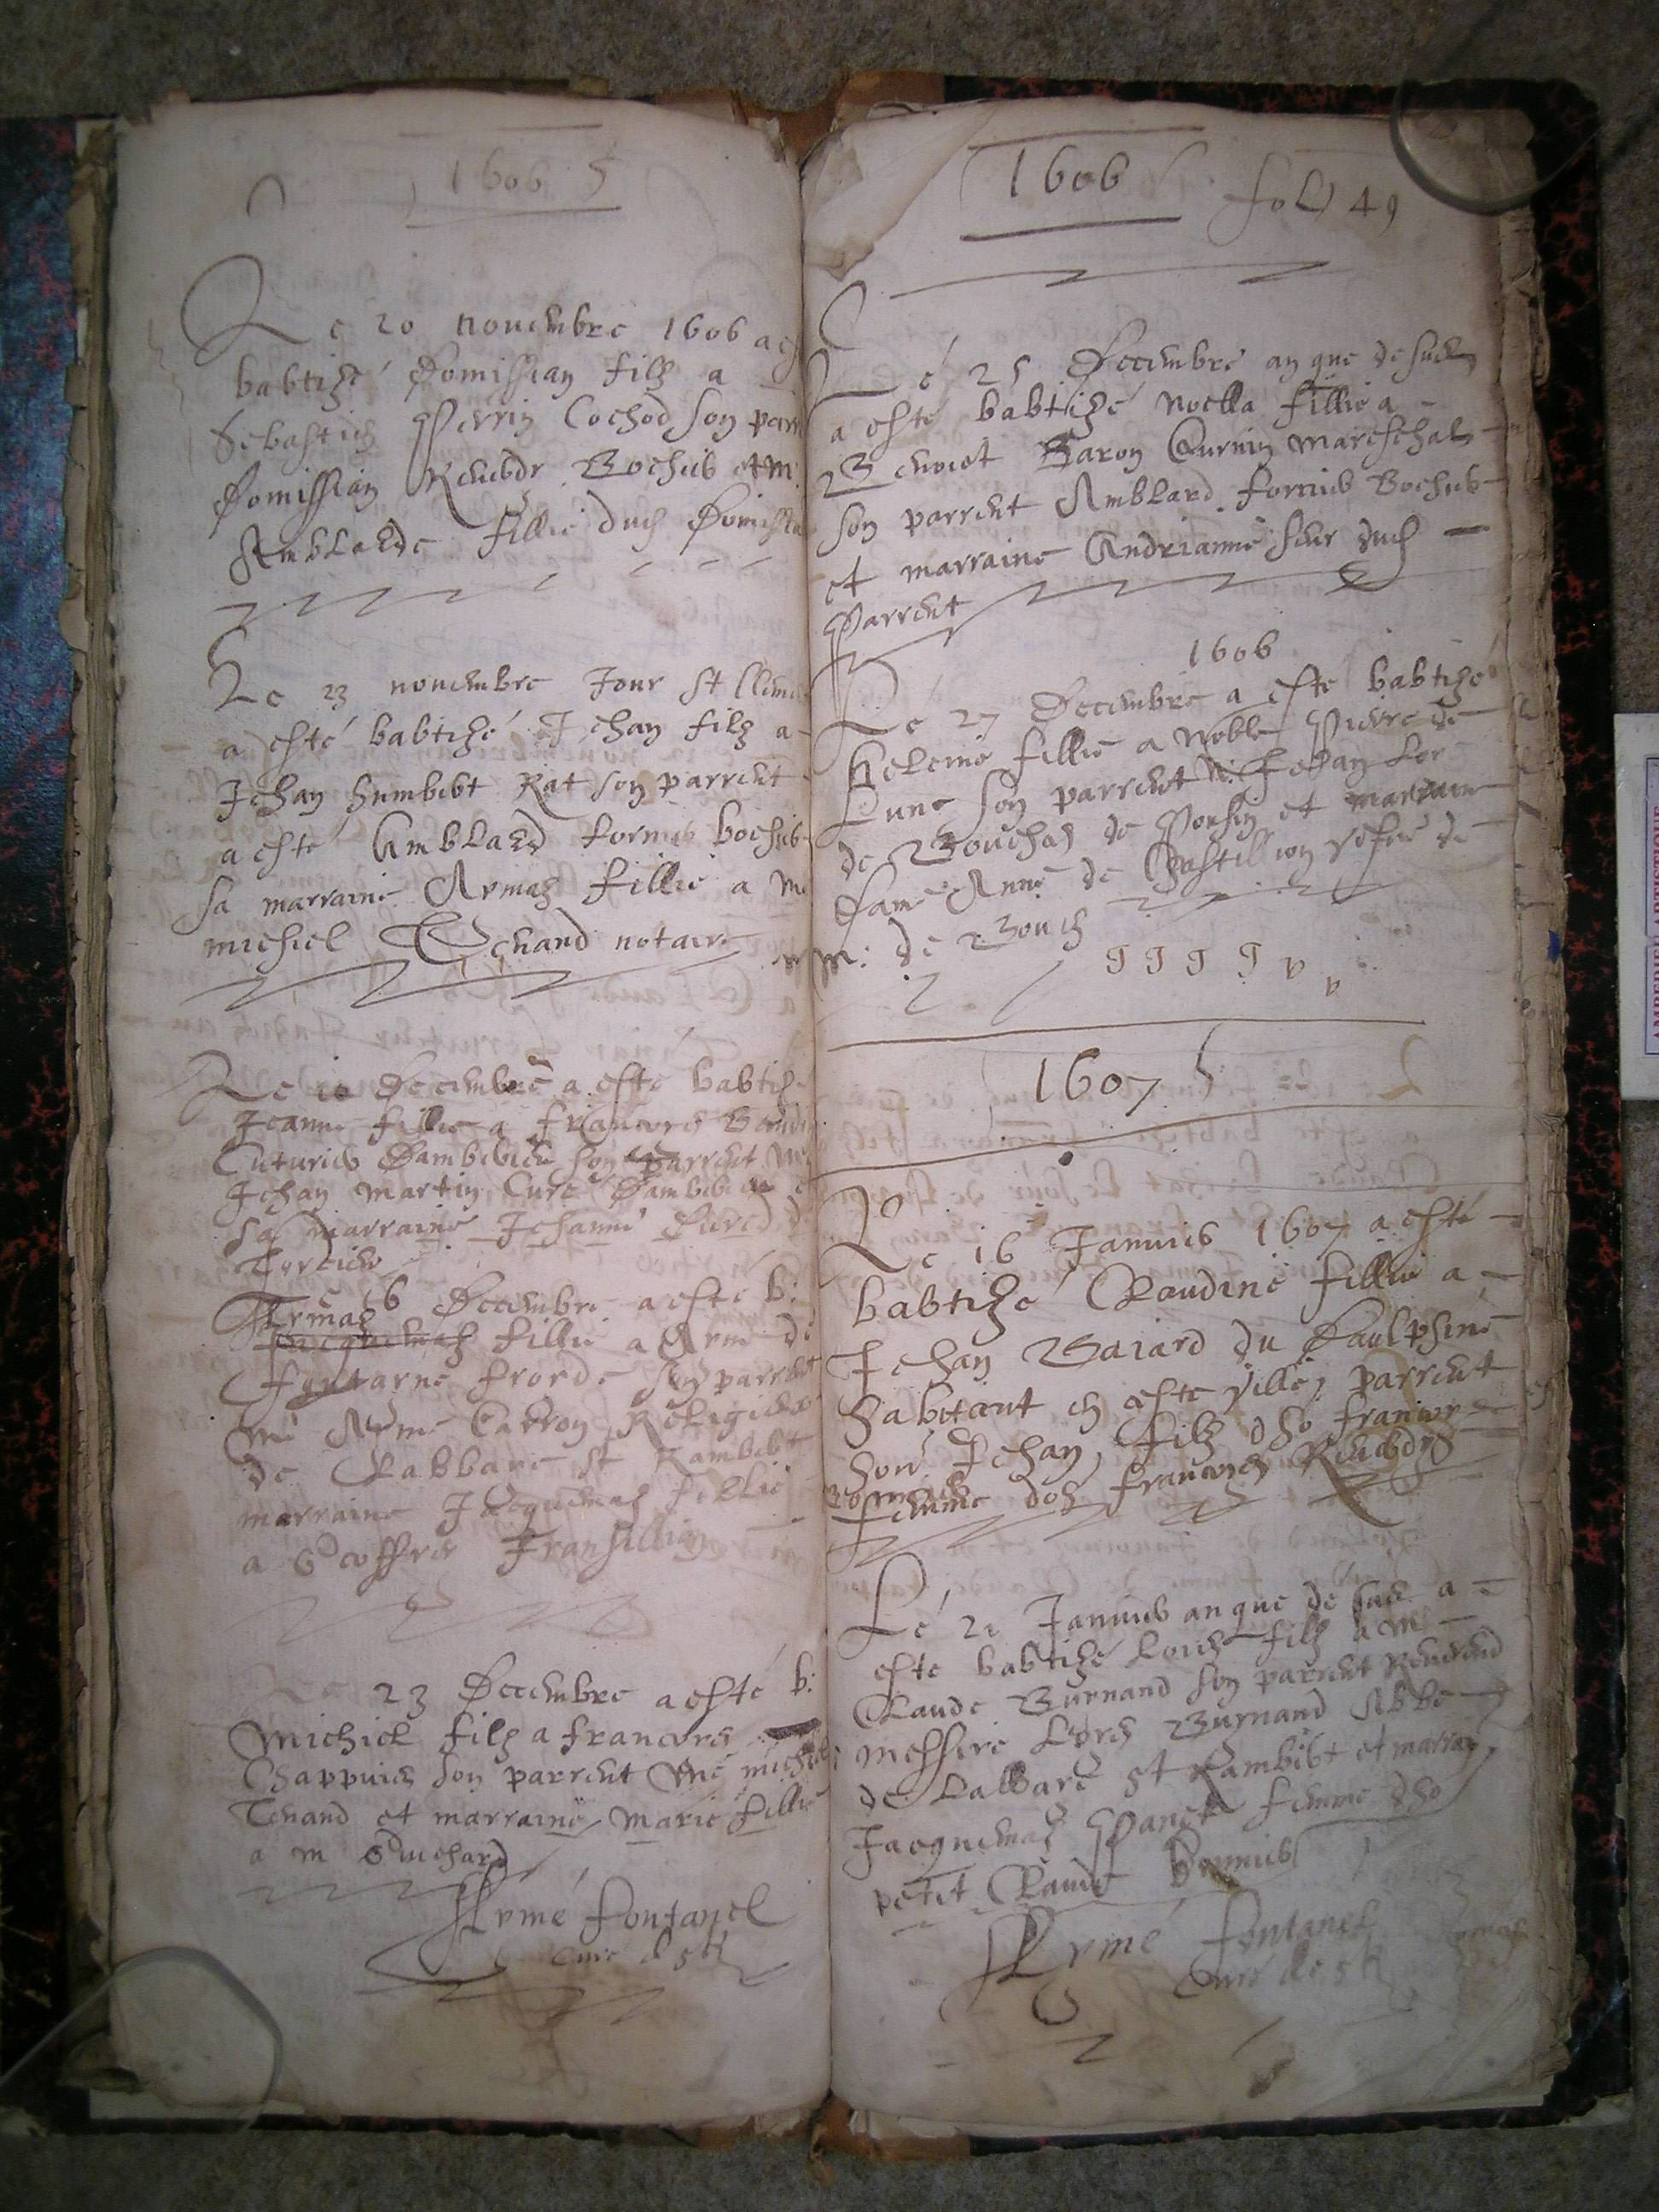 1606
Le 20 novembre 1606 a es
babtizé Domissian filz a
Sebastien Perrin Cochod son parr
Domissian Reverdy Bochier et m
Amblarde fillie dud Domissia
Le 23 novembre Jour st Clem
a esté babtizé Jehan filz a
Jehan humbert Rat son parrent
a esté Amblard Cornier bochier
sa marraine Aymaz fillie a me
michiel Tenand notaire
Le 10 Decembre a este babtiz
Jeanne fillie a francoys
Cuturier Damberieu son parrent me
Jehan martin Cure Damberieu
sa marraine Jehanne
Torcieu
Le 6 Decembre a esté b:
Aymaz
Jacquemaz fillie a Ayme de
fontane son parrent
me Ayme Carron Religieux
de Labbaie st Rambert
marraine Jacquemaz fillie
a Geoffrey Fransillion
Le 23 Decembre a esté b:
Michiel filz a francoys
Chappuis son parrent me michiel
Tenand et marraine Marie fillie
a m Guichard
Aymé fontanel
Curé de st R
1606 fol 49
Le 25 Decembre an que dessus
a esté babtizé noella fillie a
Benoict Baron Curnin mareschal
son parrent Amblard Cornier Bochier
et marraine Andrianne seur dud
Parrent
1606
Le 27 Decembre a este babtizé
heleine fillie a noble Pierre de
Lune son parrent N: Jehan Lor
de Bouchas de Ponsin et marraine
Dame Anne de Chastillion vefve de
m: de Bouch
1607
Le 16 Janvier 1607 a esté
babtizé Claudine fillie a
Jehan Baiard du Daulphiné
habitant en ceste ville, parrent
hon Jehan, filz dho francoys
femme doz francoys Reverdy
Le 21 Janvier an que dessus a
este babtizé Loich filz a m
Claude Burnand son parrent Reverend
messire Loys Burnand Abbe
de Labbaye st Rambert et marrayne
Jacquemaz Panet femme dho
petit Claude
Aymé fontanel
Curé de st R